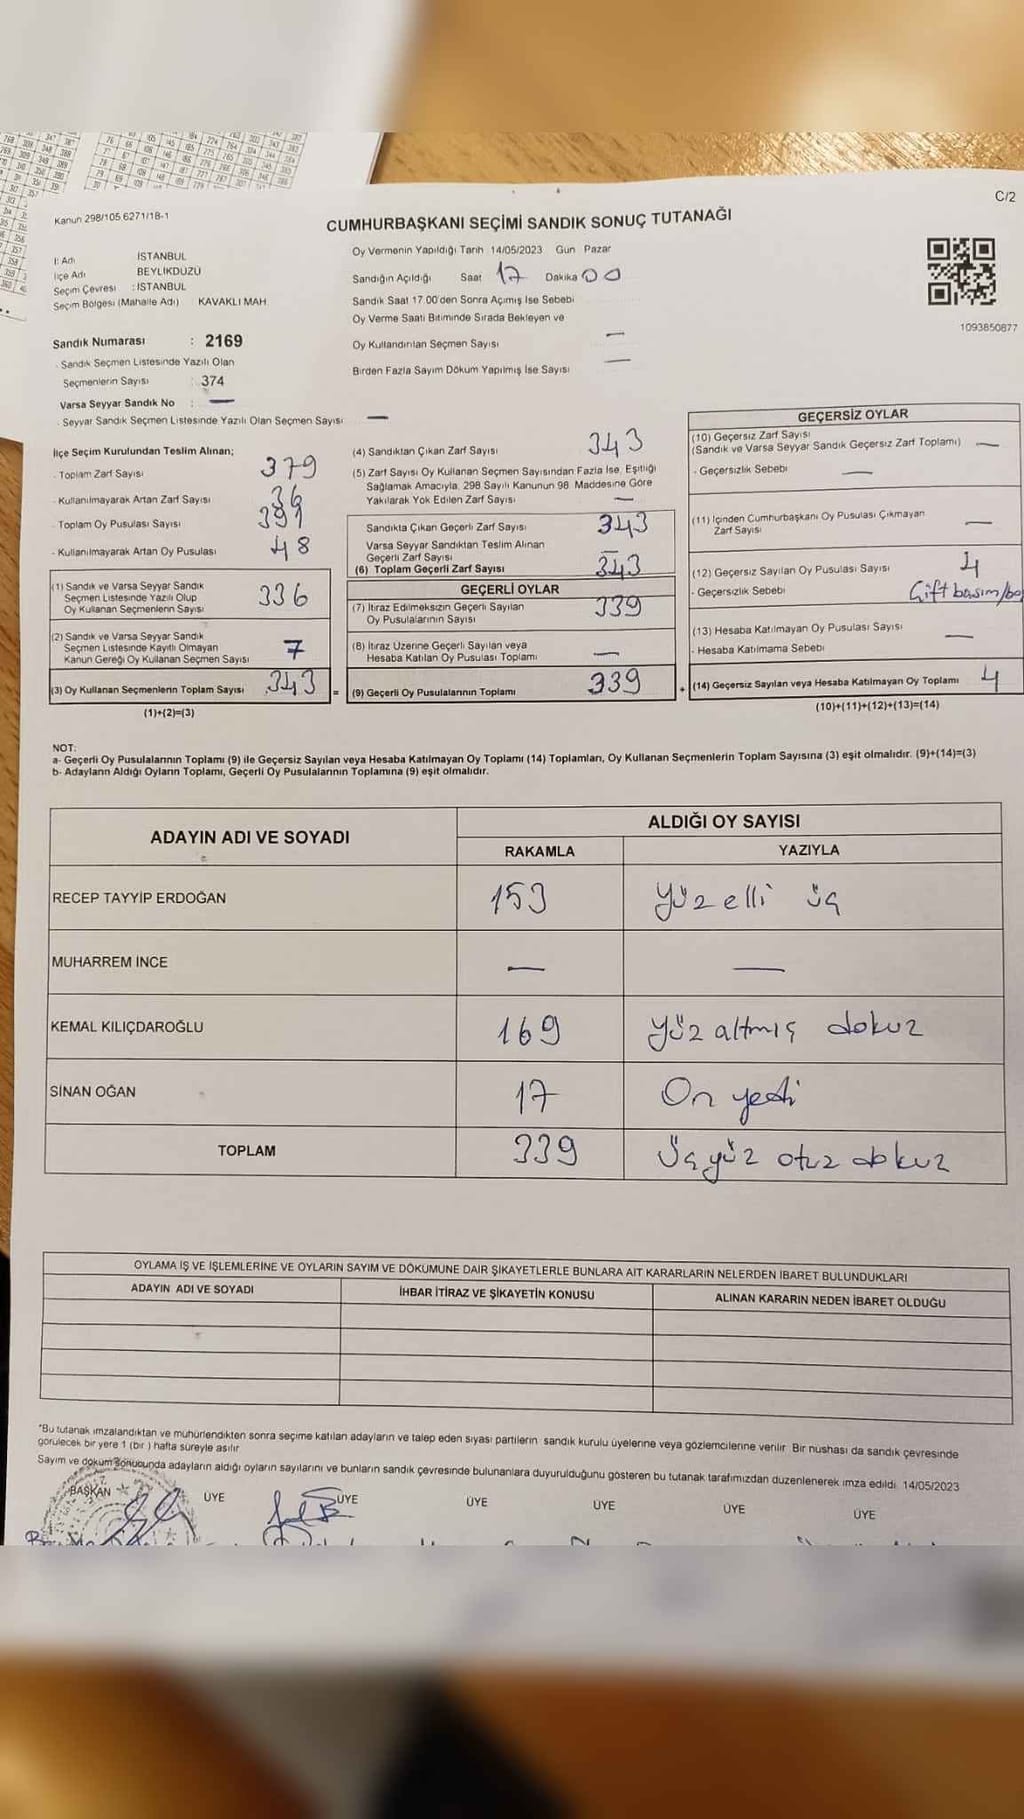 C/2
Kanun 298/105.6271/18-1
CUMHURBAŞKANI SEÇİMİ SANDIK SONUÇ TUTANAĞI
İl Adı İSTANBUL
İlçe Adı BEYLİKDÜZÜ
Seçim Çevresi : İSTANBUL
Seçim Bölgesi (Mahalle Adı) KAVAKLI MAH.
Sandık Numarası : 2169
- Sandık Seçmen Listesinde Yazılı Olan
Seçmenlerin Sayısı : 374
Varsa Seyyar Sandık No : —
- Seyyar Sandık Seçmen Listesinde Yazılı Olan Seçmen Sayısı —
Oy Vermenin Yapıldığı Tarih 14/05/2023 Gün Pazar
Sandığın Açıldığı Saat 17 Dakika 00
Sandık Saat 17.00'den Sonra Açılmış İse Sebebi
Oy Verme Saati Bitiminde Sırada Bekleyen ve
Oy Kullandırılan Seçmen Sayısı —
Birden Fazla Sayım Döküm Yapılmış İse Sayısı —
1093850877
İlçe Seçim Kurulundan Teslim Alınan;
- Toplam Zarf Sayısı 379
- Kullanılmayarak Artan Zarf Sayısı 36
- Toplam Oy Pusulası Sayısı 391
- Kullanılmayarak Artan Oy Pusulası 48
(1) Sandık ve Varsa Seyyar Sandık
Seçmen Listesinde Yazılı Olup
Oy Kullanan Seçmenlerin Sayısı 336
(2) Sandık ve Varsa Seyyar Sandık
Seçmen Listesinde Kayıtlı Olmayan
Kanun Gereği Oy Kullanan Seçmen Sayısı 7
(3) Oy Kullanan Seçmenlerin Toplam Sayısı 343
(1)+(2)=(3)
(4) Sandıktan Çıkan Zarf Sayısı 343
(5) Zarf Sayısı Oy Kullanan Seçmen Sayısından Fazla İse, Eşitliği
Sağlamak Amacıyla, 298 Sayılı Kanunun 98. Maddesine Göre
Yakılarak Yok Edilen Zarf Sayısı —
Sandıkta Çıkan Geçerli Zarf Sayısı 343
Varsa Seyyar Sandıktan Teslim Alınan
Geçerli Zarf Sayısı —
(6) Toplam Geçerli Zarf Sayısı 343
GEÇERLİ OYLAR
(7) İtiraz Edilmeksizin Geçerli Sayılan
Oy Pusulalarının Sayısı 339
(8) İtiraz Üzerine Geçerli Sayılan veya
Hesaba Katılan Oy Pusulası Toplamı —
= (9) Geçerli Oy Pusulalarının Toplamı 339
GEÇERSİZ OYLAR
(10) Geçersiz Zarf Sayısı
(Sandık ve Varsa Seyyar Sandık Geçersiz Zarf Toplamı) —
- Geçersizlik Sebebi —
(11) İçinden Cumhurbaşkanı Oy Pusulası Çıkmayan
Zarf Sayısı —
(12) Geçersiz Sayılan Oy Pusulası Sayısı 4
- Geçersizlik Sebebi Çift basım/bo
(13) Hesaba Katılmayan Oy Pusulası Sayısı —
- Hesaba Katılmama Sebebi
+ (14) Geçersiz Sayılan veya Hesaba Katılmayan Oy Toplamı 4
(10)+(11)+(12)+(13)=(14)
NOT:
a- Geçerli Oy Pusulalarının Toplamı (9) ile Geçersiz Sayılan veya Hesaba Katılmayan Oy Toplamı (14) Toplamları, Oy Kullanan Seçmenlerin Toplam Sayısına (3) eşit olmalıdır. (9)+(14)=(3)
b- Adayların Aldığı Oyların Toplamı, Geçerli Oy Pusulalarının Toplamına (9) eşit olmalıdır.
ADAYIN ADI VE SOYADI ALDIĞI OY SAYISI
RAKAMLA YAZIYLA
RECEP TAYYİP ERDOĞAN 153 Yüz elli üç
MUHARREM İNCE — —
KEMAL KILIÇDAROĞLU 169 Yüz altmış dokuz
SİNAN OĞAN 17 On yedi
TOPLAM 339 Üçyüz otuz dokuz
OYLAMA İŞ VE İŞLEMLERİNE VE OYLARIN SAYIM VE DÖKÜMÜNE DAİR ŞİKAYETLERLE BUNLARA AİT KARARLARIN NELERDEN İBARET BULUNDUKLARI
ADAYIN ADI VE SOYADI İHBAR İTİRAZ VE ŞİKAYETİN KONUSU ALINAN KARARIN NEDEN İBARET OLDUĞU
*Bu tutanak imzalandıktan ve mühürlendikten sonra seçime katılan adayların ve talep eden siyasi partilerin sandık kurulu üyelerine veya gözlemcilerine verilir. Bir nüshası da sandık çevresinde
görülecek bir yere 1 (bir ) hafta süreyle asılır
Sayım ve döküm sonucunda adayların aldığı oyların sayılarını ve bunların sandık çevresinde bulunanlara duyurulduğunu gösteren bu tutanak tarafımızdan düzenlenerek imza edildi. 14/05/2023
BAŞKAN ÜYE ÜYE ÜYE ÜYE ÜYE ÜYE